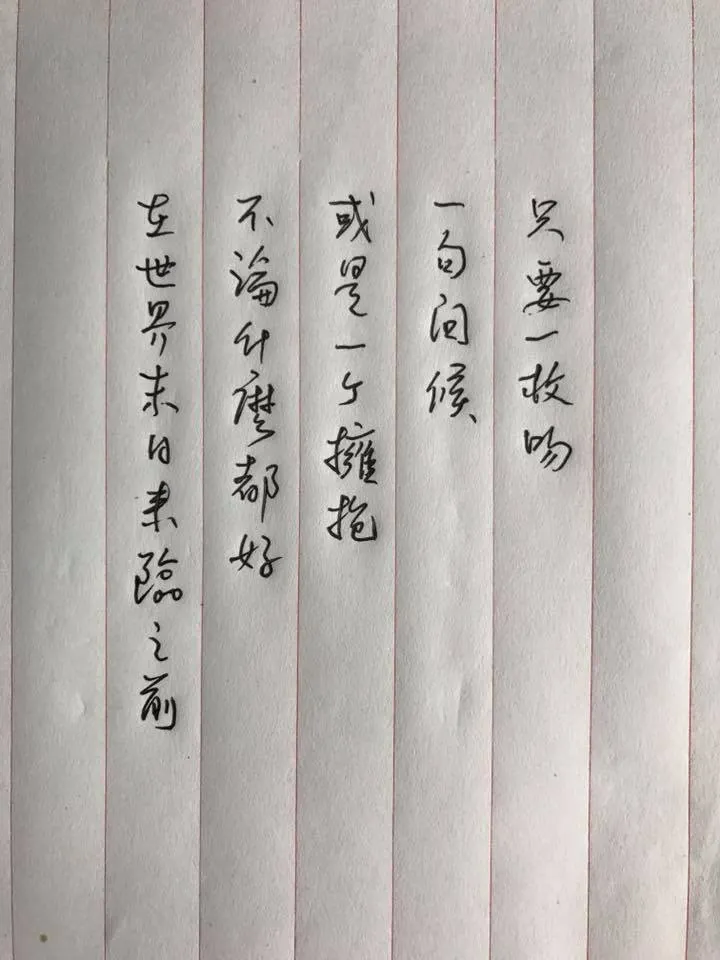 只要一枚吻
一句问候
或是一个擁抱
不論什麼都好
在世界末日来臨之前